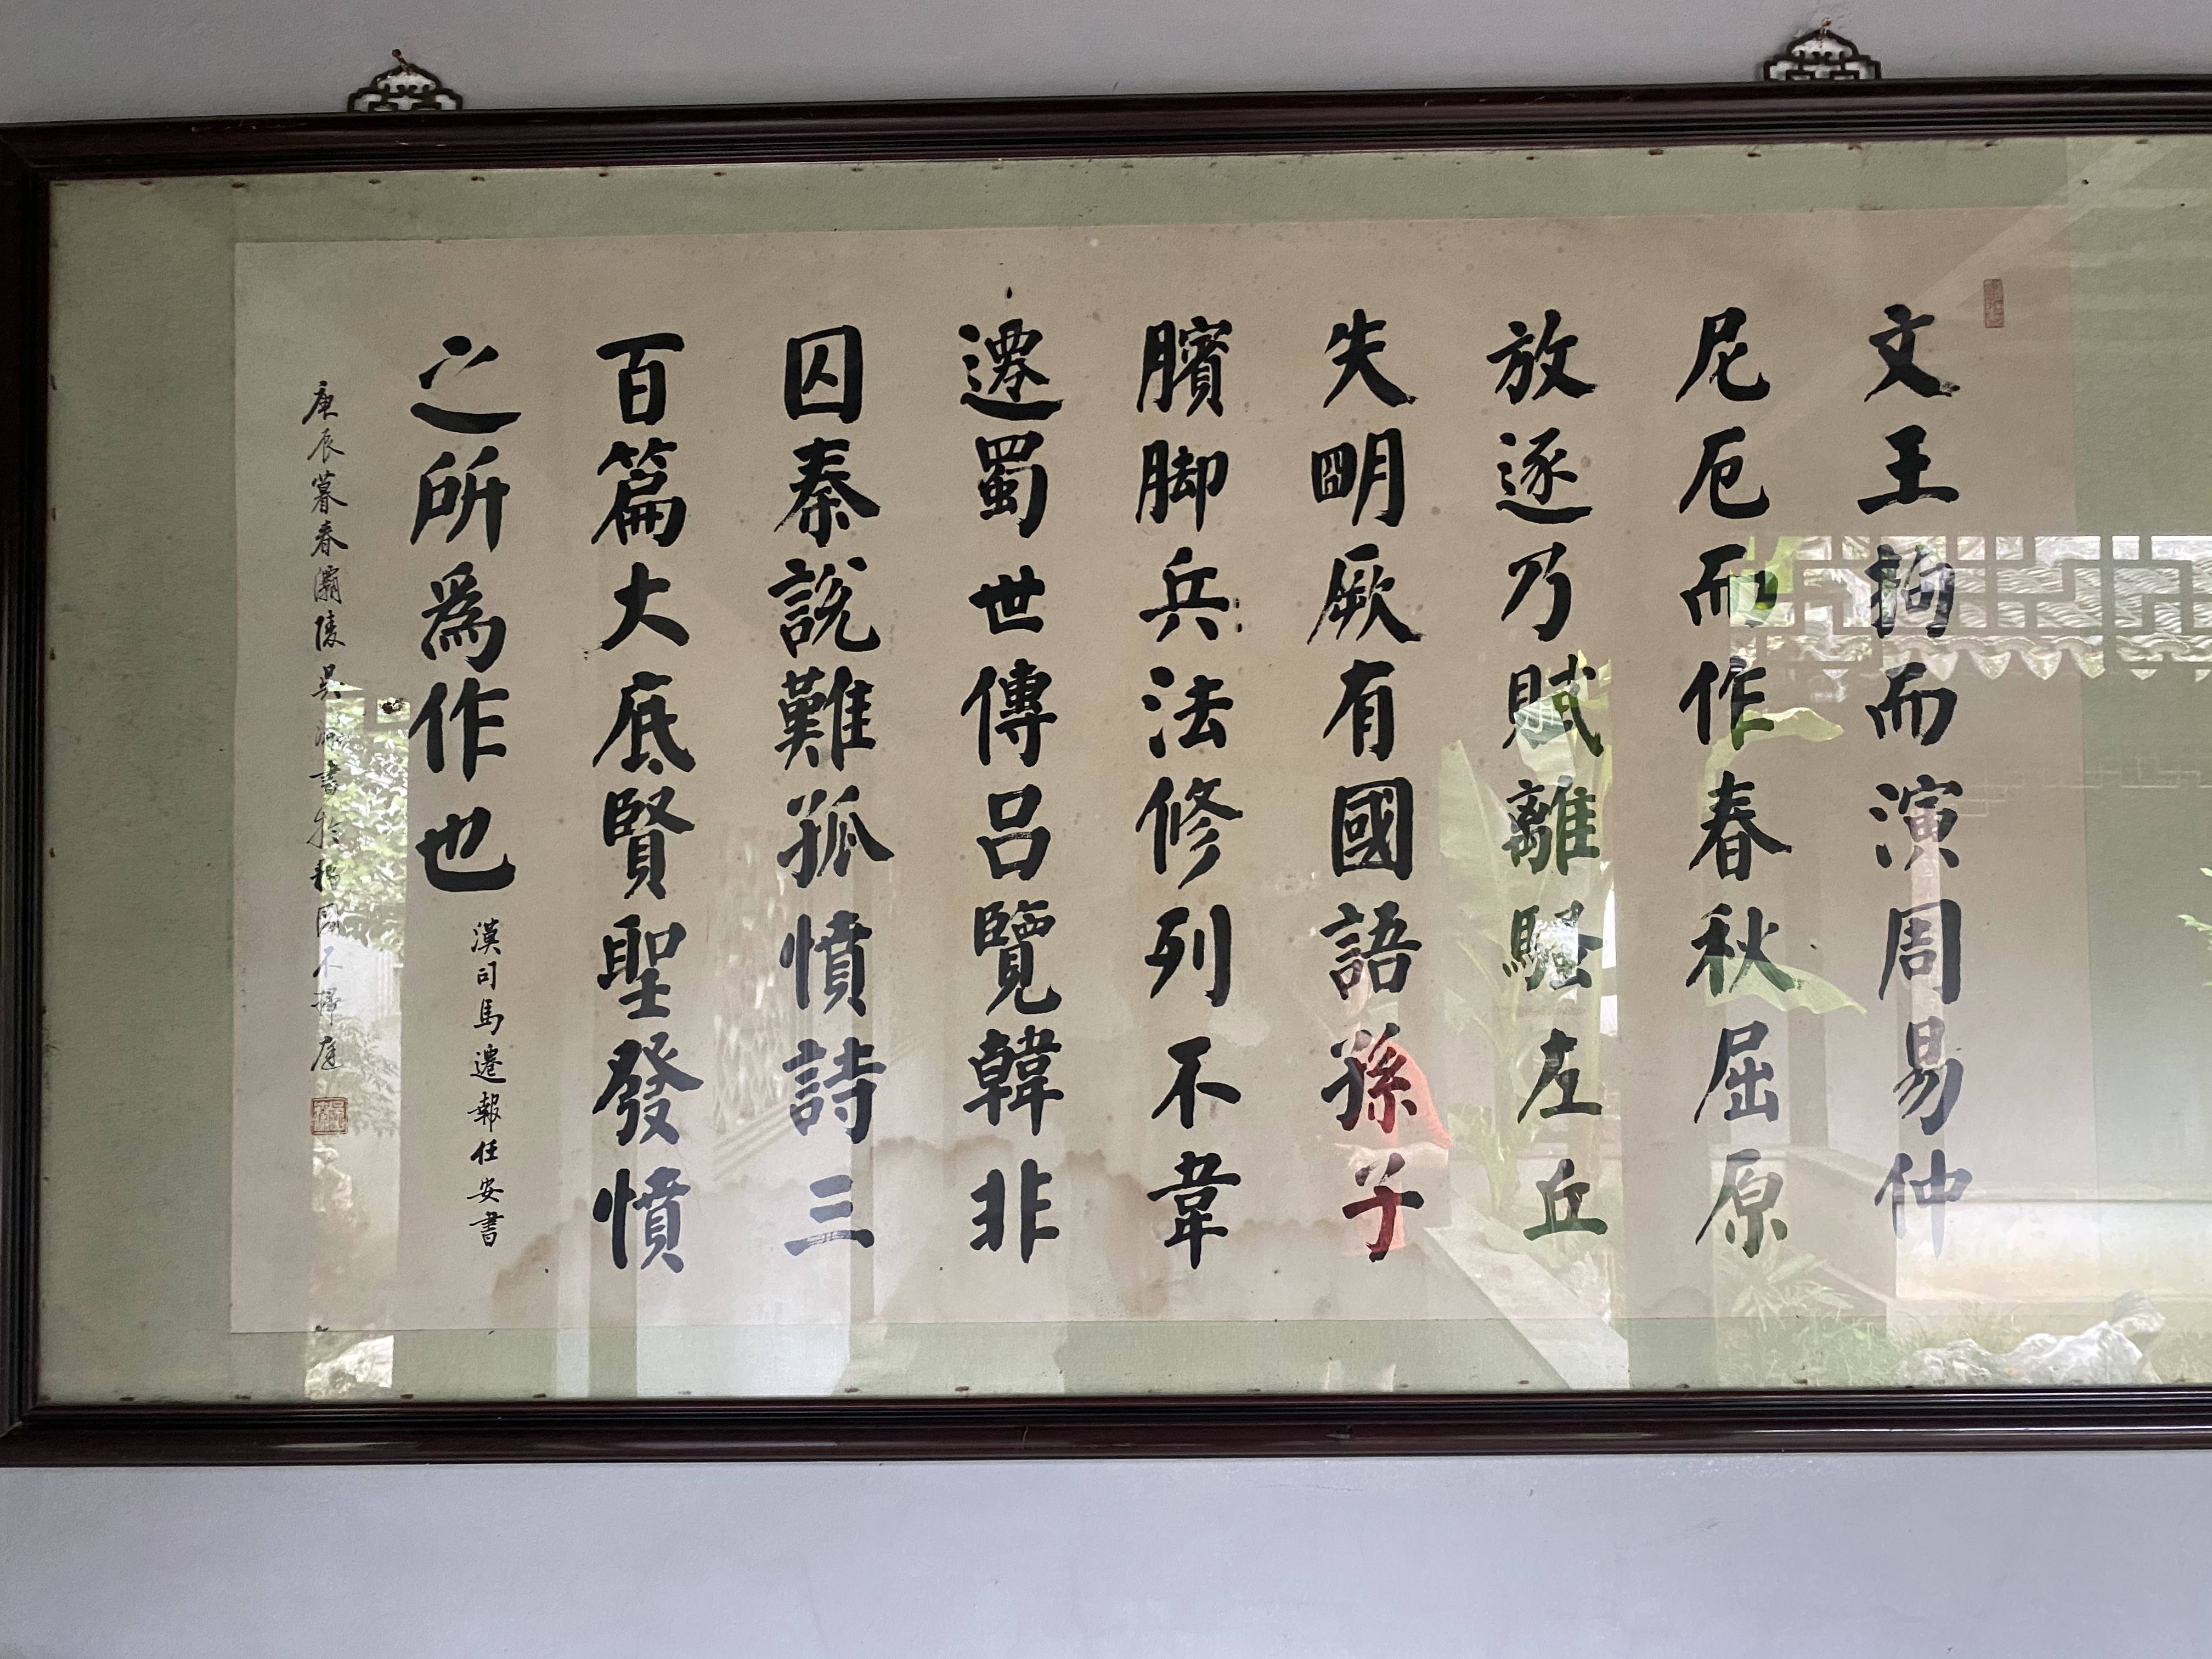 文王拘而演周易仲
尼厄而作春秋屈原
放逐乃賦離騷左丘
失明厥有國語孫子
臏脚兵法修列不韋
遷蜀世傳呂覽韓非
囚秦說難孤憤詩三
百篇大底賢聖發憤
之所為作也
漢司馬遷報任安書
庚辰暮春灞陵吳書於耦園不掃庭